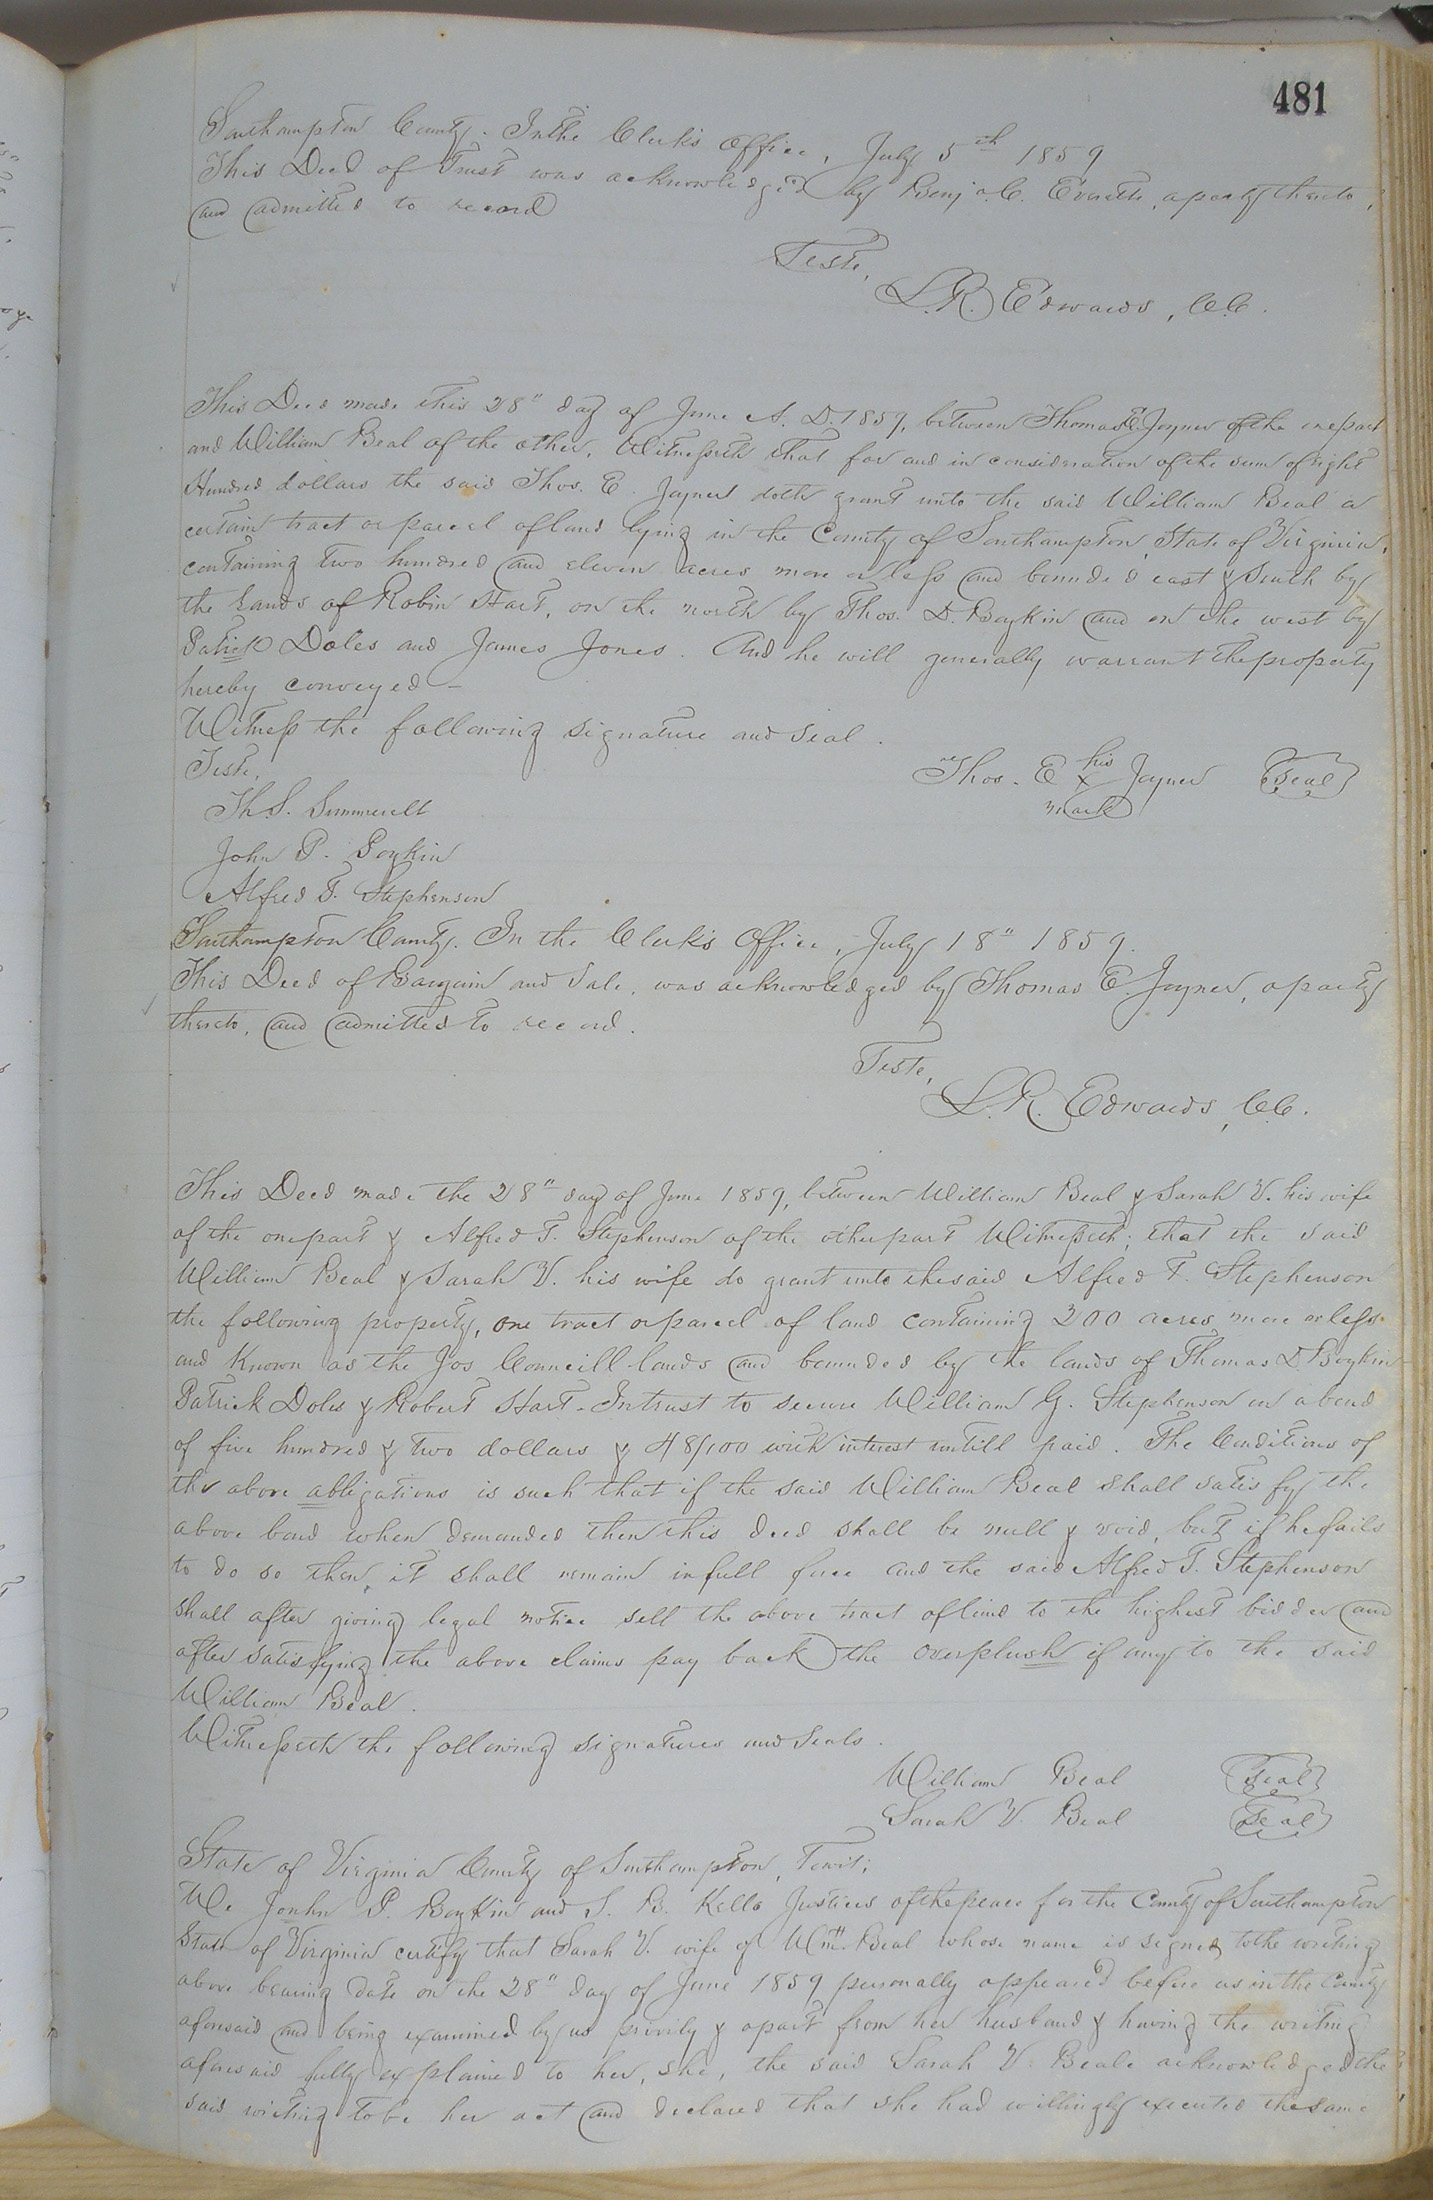 481
Southampton County. In the Clerk's Office, July 5th 1859
This Deed of Trust was acknowledged by Benj. C. Everett, a party thereto,
and admitted to record
Teste,
L. R. Edwards, C.C.
This Deed made this 28" day of June A. D. 1859, between Thomas E. Joyner of the one part
and William Beal of the other, Witnesseth that for and in consideration of the sum of eight
Hundred dollars the said Thos. E. Joyner doth grant unto the said William Beal a
certain tract or parcel of land lying in the County of Southampton, State of Virginia,
containing two hundred and eleven acres more or less and bounded east & South by
the Lands of Robin Hart, on the north by Thos. D. Boykin and on the west by
Patrick Doles and James Jones. And he will generally warrant the property
hereby conveyed —
Witness the following signature and seal.
Teste,
Thos. E his x mark Joyner Seal
Th. S. Summerell
John P. Boykin
Alfred T. Stephenson
Southampton County. In the Clerk's Office, July 18" 1859.
This Deed of Bargain and Sale, was acknowledged by Thomas E. Joyner, a party
thereto, and admitted to record.
Teste,
L. R. Edwards, C.C.
This Deed made the 28" day of June 1859, between William Beal & Sarah V. his wife
of the one part & Alfred T. Stephenson of the other part Witnesseth; that the said
William Beal & Sarah V. his wife do grant unto the said Alfred T. Stephenson
the following property, one tract or parcel of land containing 200 acres more or less
and Known as the Jos Councill lands and bounded by the lands of Thomas D. Boykin
Patrick Doles & Robert Hart - In trust to secure William G. Stephenson in a bond
of five hundred & two dollars & 48/100 with interest untill paid. The Conditions of
the above obligations is such that if the said William Beal shall satisfy the
above bond when demanded then this deed shall be null & void, but if he fails
to do so then, it shall remain in full force and the said Alfred T. Stephenson
shall after giving legal notice sell the above tract of land to the highest bidder and
after satisfying the above claims pay back the overplush if any to the said
William Beal.
Witnesseth the following signatures and Seals.
William Beal Seal
Sarah V. Beal Seal
State of Virginia County of Southampton, Towit;
We Jonhn P. Boykin and S. B. Kello Justices of the peace for the County of Southampton
State of Virginia certify that Sarah V. wife of Wm Beal whose name is signed to the writing
above bearing date on the 28" day of June 1859 personally appeared before us in the County
aforesaid and being examined by us privily & apart from her husband & having the writing
aforesaid fully explained to her, she, the said Sarah V. Beale acknowledged the
said writing to be her act and declared that she had willingly executed the same